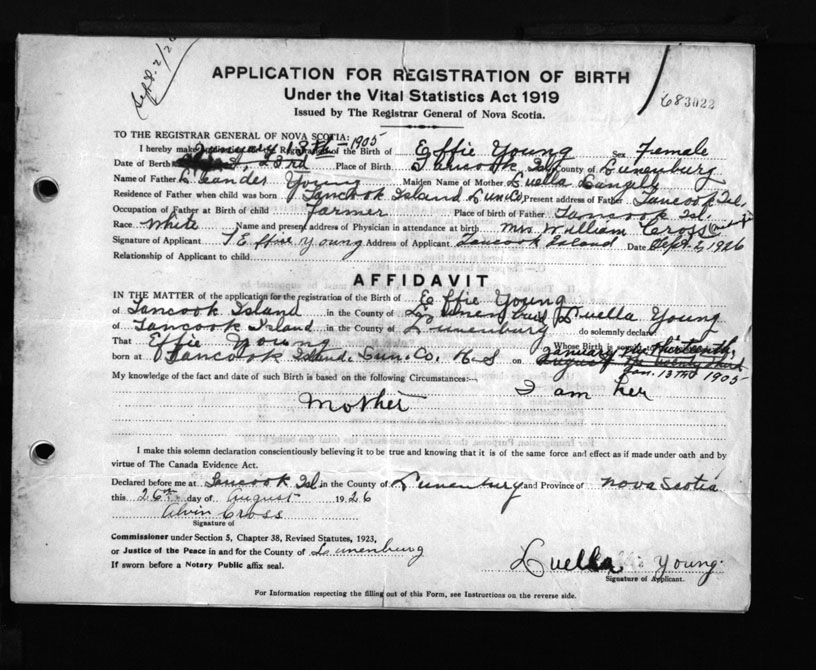 Sept. 2/26
APPLICATION FOR REGISTRATION OF BIRTH
683022
Under the Vital Statistics Act 1919
Issued by The Registrar General of Nova Scotia.
TO THE REGISTRAR GENERAL OF NOVA SCOTIA:
I hereby make Registration of the Birth of Effie Young Sex Female
January 13th - 1905
Date of Berth 23rd Place of Birth Tancook Isl County of Lunenburg
Name of Father Leander Young Maiden Name of Mother Luella Langille
Residence of Father when child was born Tancook Island Lun Co Present address of Father Tancook Isl.
Occupation of Father at Birth of child farmer Place of birth of Father Tancook Isl.
Race White Name and present address of Physician in attendance at birth Mrs. William Cross
Signature of Applicant Effie Young Address of Applicant Tancook Island Date Sept. 2, 1926
Relationship of Applicant to child
AFFIDAVIT
IN THE MATTER of the application for the registration of the Birth of Effie Young
of Tancook Island in the County of Lunenburg I, Luella Young
of Tancook Island in the County of Lunenburg do solemnly declare:
That Effie Young Whose Birth is January the thirteenth,
born at Tancook Island. Lun. Co. N. S on August the twenty third
Jan. 13th 1905
My knowledge of the fact and date of such Birth is based on the following Circumstances:— I am her
Mother
I make this solemn declaration conscientiously believing it to be true and knowing that it is of the same force and effect as if made under oath and by
virtue of The Canada Evidence Act.
Declared before me at Tancook Isl in the County of Lunenburg and Province of Nova Scotia
this 26th day of August 1926
Alvin Cross
Signature of
Commissioner under Section 5, Chapter 38, Revised Statutes, 1923,
or Justice of the Peace in and for the County of Lunenburg
If sworn before a Notary Public affix seal.
Luella Young.
Signature of Applicant.
For Information respecting the filling out of this Form, see Instructions on the reverse side.